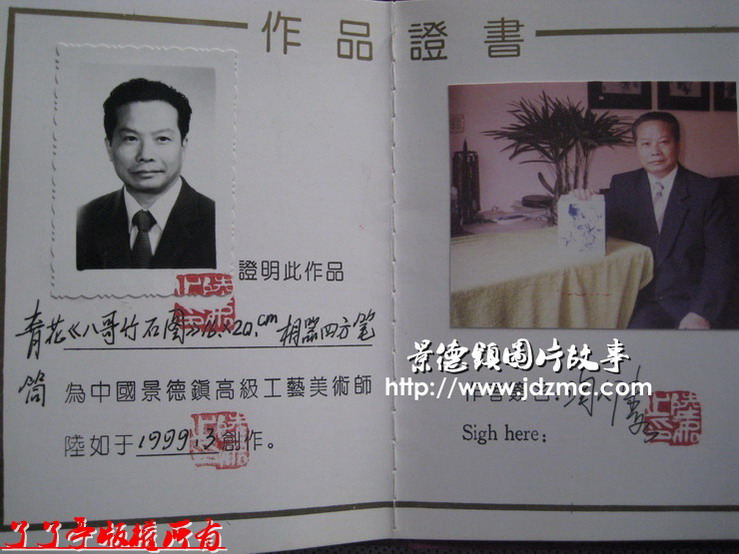 作品證書
證明此作品
青花《八哥竹石图》 20.cm 相器四方笔
筒 為中國景德鎮高級工藝美術師
陸如于1999.3創作。
景德鎮圖片故事
http://www.jdzmc.com
作者簽名:
Sigh here:
了了亭版權所有